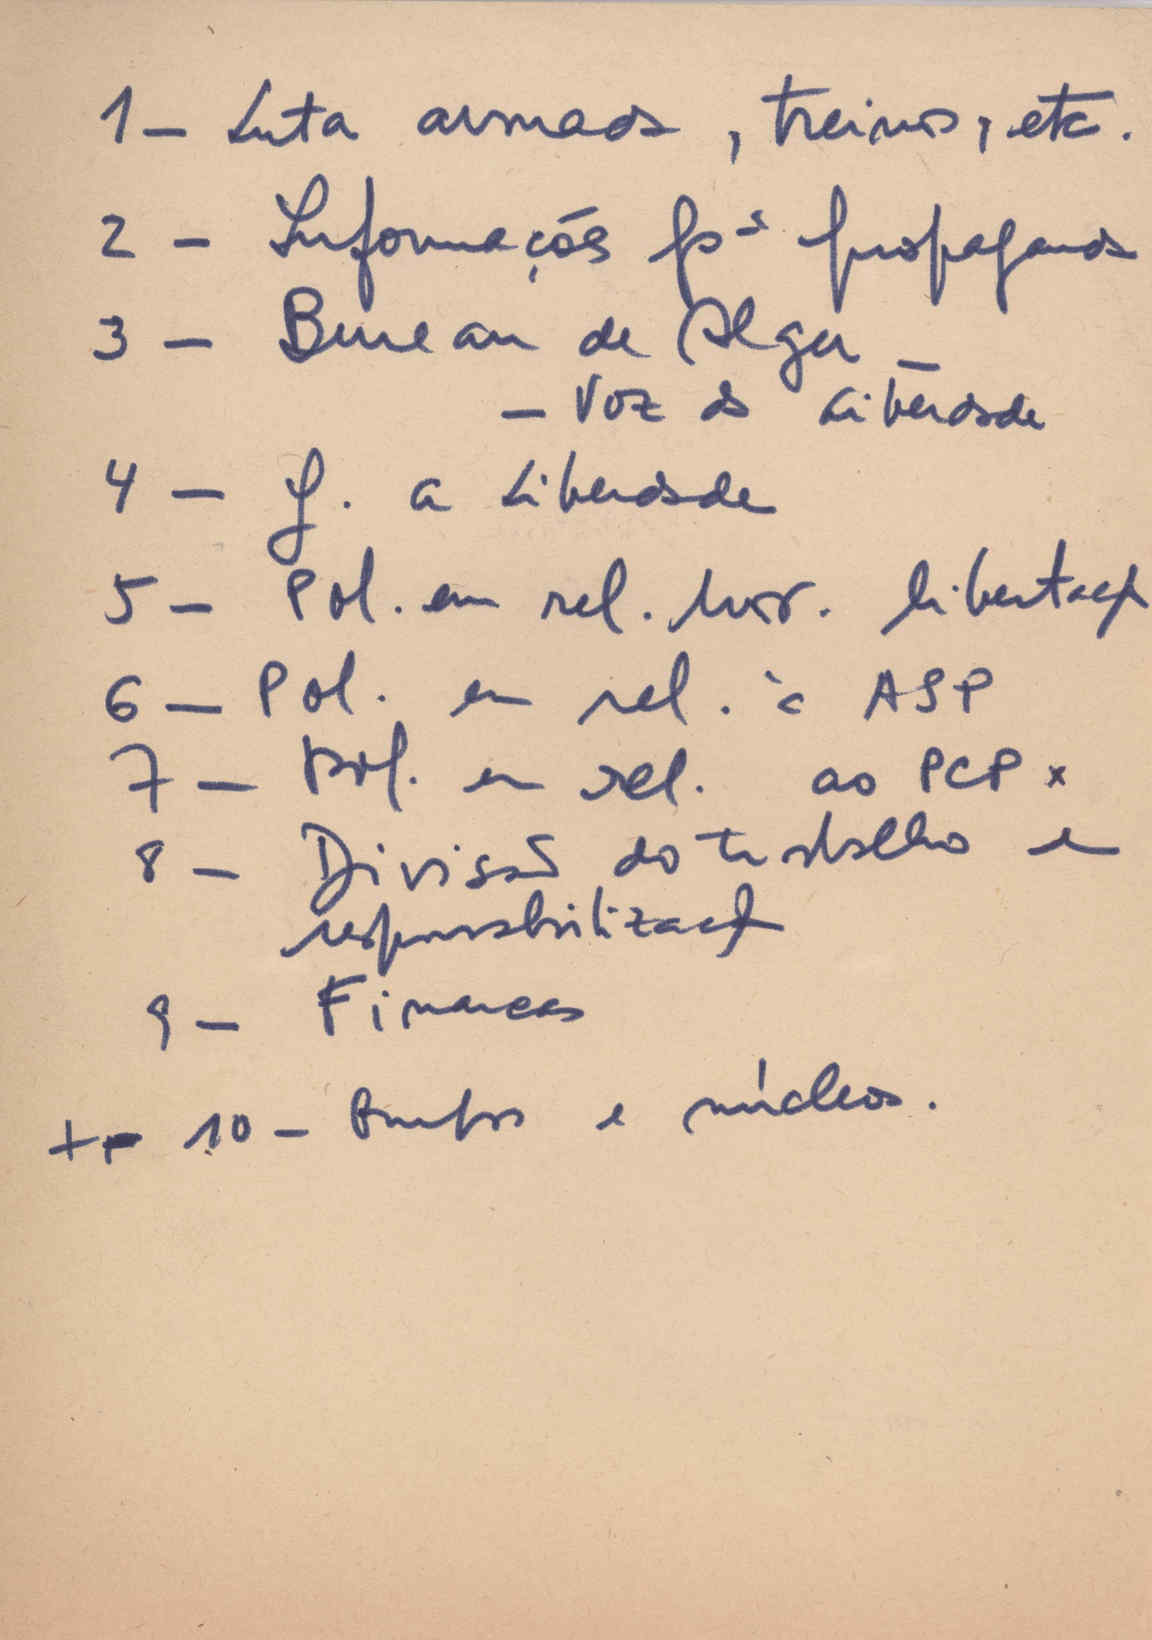 1 - Luta armada, treinos, etc.
2 - Informações pª propaganda
3 - Bureau de Alger -
- Voz da Liberdade
4 - J. a Liberdade
5 - Pol. em rel. mov. libertaç
6 - Pol. em rel. à ASP
7 - Pol. em rel. ao PCP x
8 - Divisão do trabalho e
responsabilizaç
9 - Finanças
+ - 10 - e núcleos.